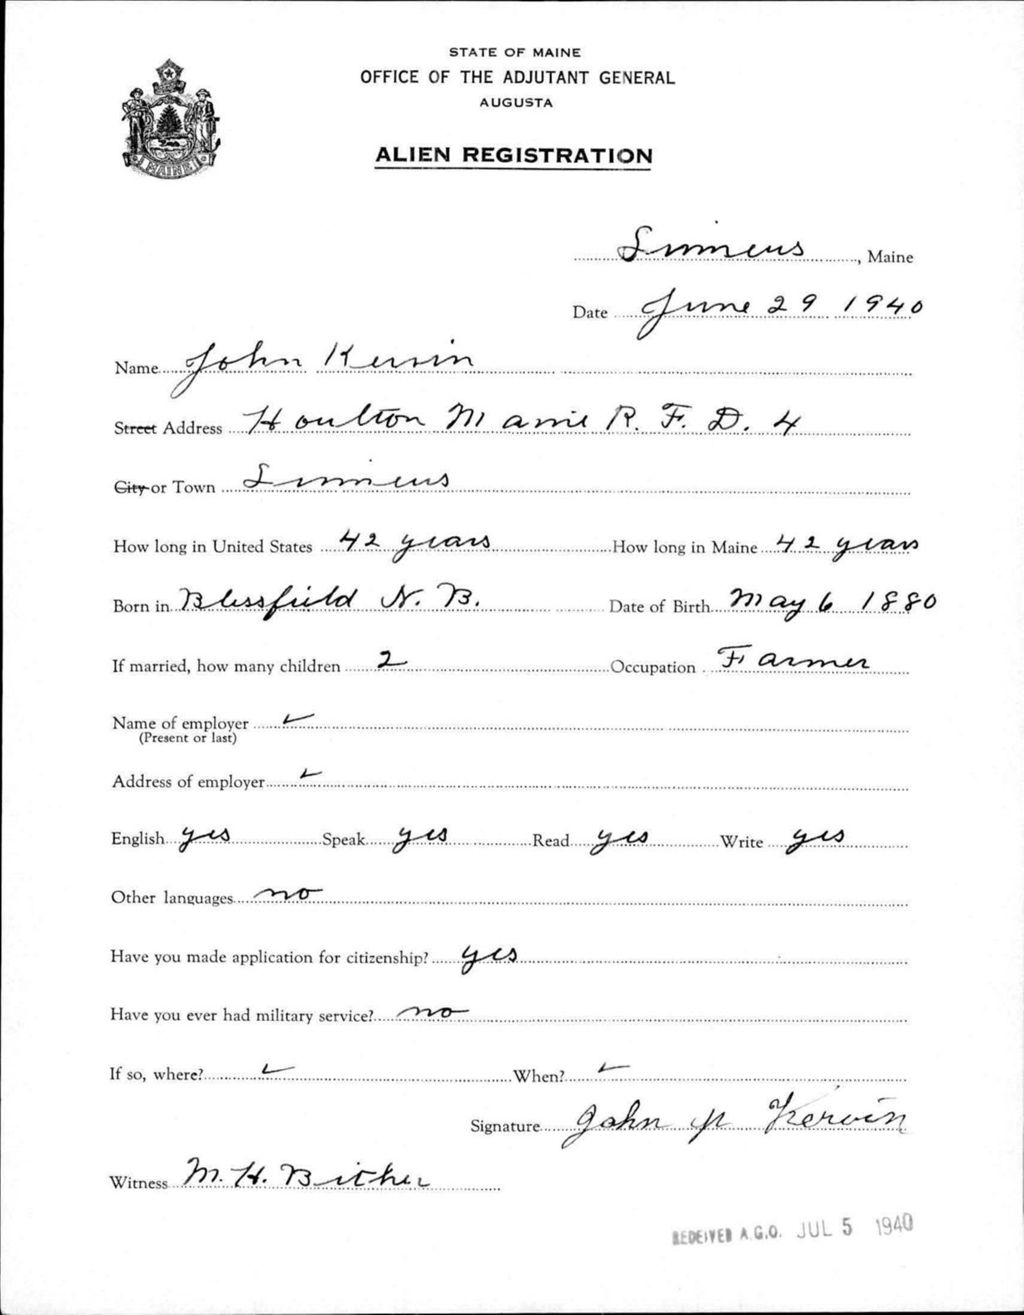 STATE OF MAINE
OFFICE OF THE ADJUTANT GENERAL
AUGUSTA
ALIEN REGISTRATION
MAINE
Linneus, Maine
Date June 29 1940
Name John Kervin
Street Address Houlton Maine R. F. D. 4
City or Town Linneus
How long in United States 42 years How long in Maine 42 years
Born in Blissfield N. B. Date of Birth May 6 1880
If married, how many children 2 Occupation Farmer
Name of employer ✓
(Present or last)
Address of employer ✓
English yes Speak yes Read yes Write yes
Other languages no
Have you made application for citizenship? yes
Have you ever had military service? no
If so, where? ✓ When? ✓
Signature John Kervin
Witness M. H. Bither
RECEIVED A.G.O. JUL 5 1940